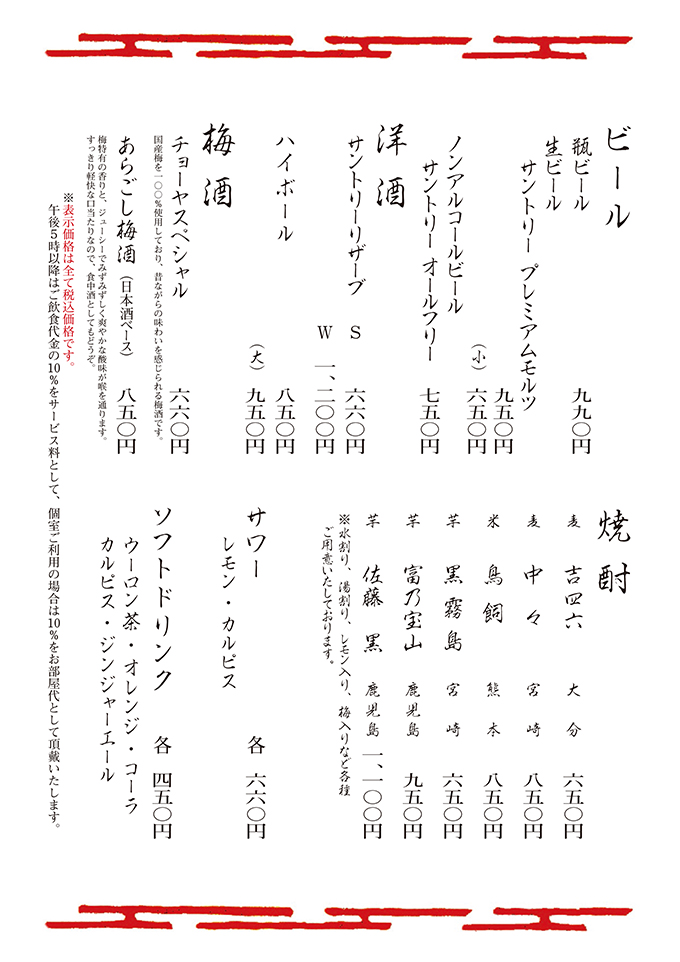 ビール
瓶ビール 九九〇円
生ビール
サントリー プレミアムモルツ
九五〇円
(小) 六五〇円
ノンアルコールビール
サントリー オールフリー 七五〇円
洋酒
サントリーリザーブ S 六六〇円
W 一、二〇〇円
ハイボール 八五〇円
(大) 九五〇円
梅酒
チョーヤスペシャル 六六〇円
国産梅を一〇〇%使用しており、昔ながらの味わいを感じられる梅酒です。
あらごし梅酒(日本酒ベース) 八五〇円
梅特有の香りと、ジューシーでみずみずしく爽やかな酸味が喉を通ります。
すっきり軽快な口当たりなので、食中酒としてもどうぞ。
焼酎
麦 吉四六 大分 六五〇円
麦 中々 宮崎 八五〇円
米 鳥飼 熊本 八五〇円
芋 黒霧島 宮崎 六五〇円
芋 富乃宝山 鹿児島 九五〇円
芋 佐藤 黒 鹿児島 一、一〇〇円
※水割り、湯割り、レモン入り、梅入りなど各種
ご用意いたしております。
サワー 各 六六〇円
レモン・カルピス
ソフトドリンク 各 四五〇円
ウーロン茶・オレンジ・コーラ
カルピス・ジンジャーエール
※表示価格は全て税込価格です。
午後5時以降はご飲食代金の10%をサービス料として、個室ご利用の場合は10%をお部屋代として頂戴いたします。